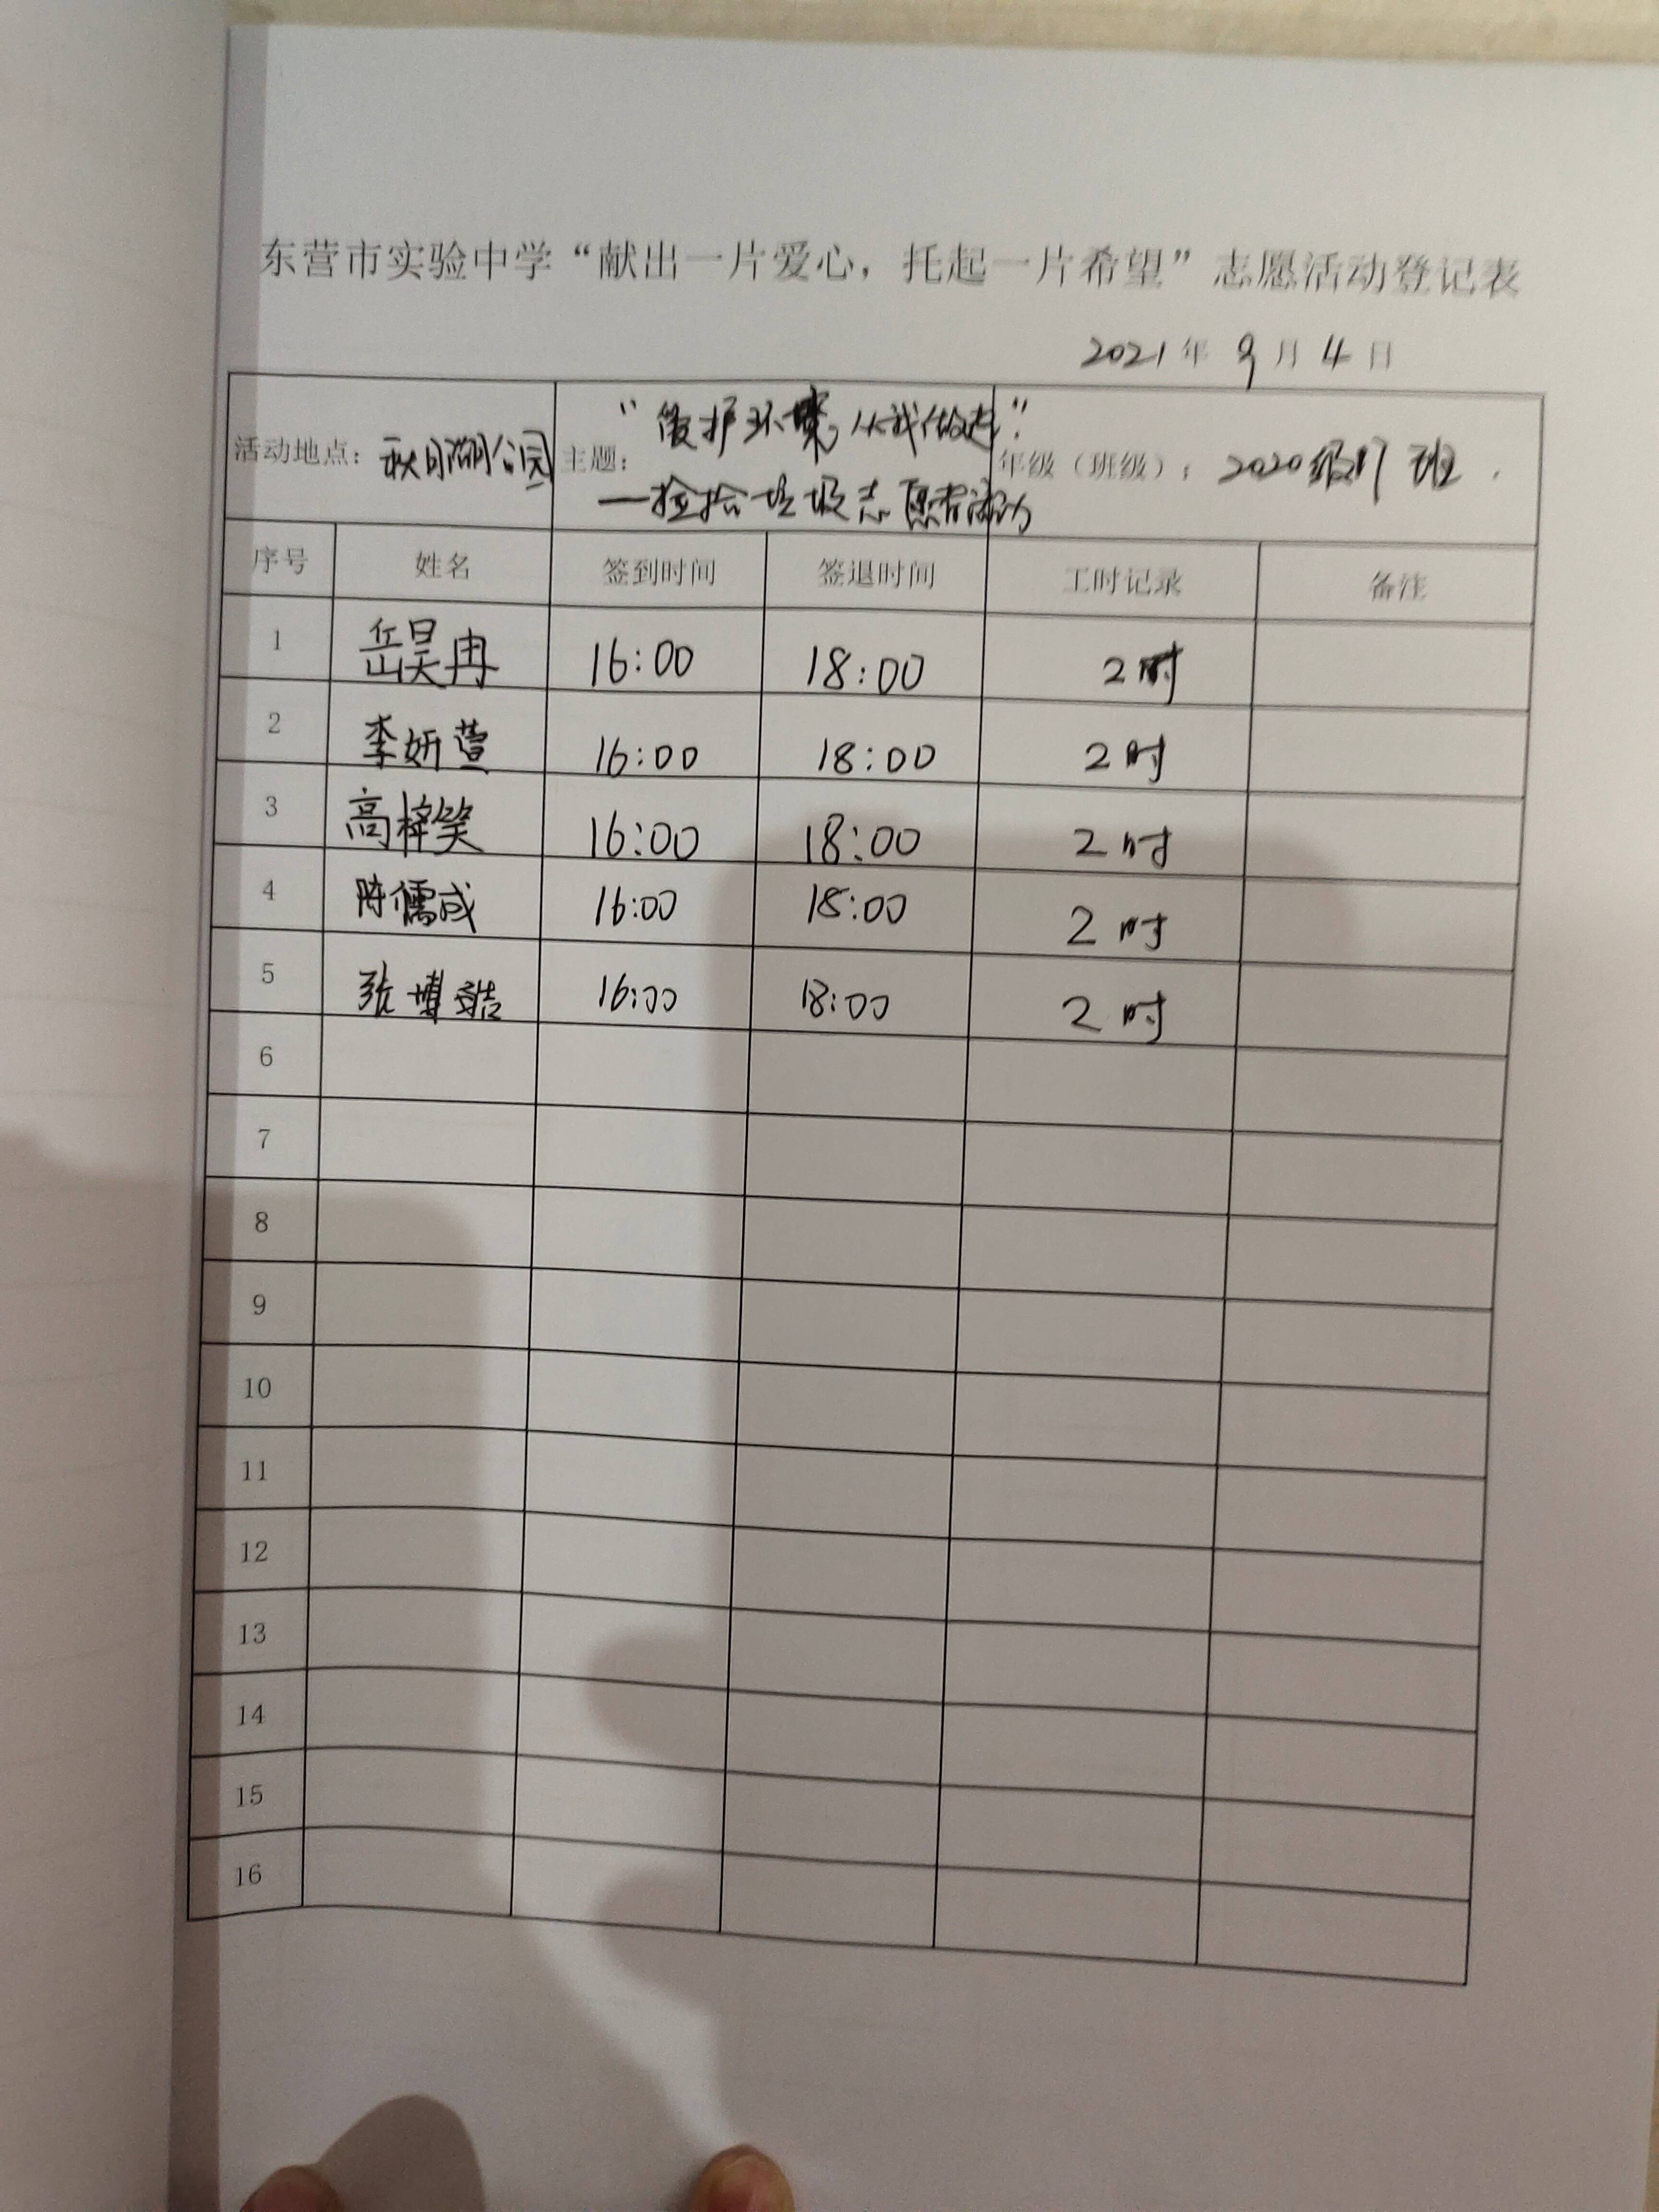 东营市实验中学“献出一片爱心，托起一片希望”志愿活动登记表
2021年 9月 4日
活动地点：秋月湖公园 主题：“爱护环境，从我做起” 年级（班级）：2020级17班
—捡拾垃圾志愿者活动
序号 姓名 签到时间 签退时间 工时记录 备注
1 岳昊冉 16:00 18:00 2时
2 李妍萱 16:00 18:00 2时
3 高梓笑 16:00 18:00 2时
4 陈儒成 16:00 18:00 2时
5 张博浩 16:00 18:00 2时
6
7
8
9
10
11
12
13
14
15
16